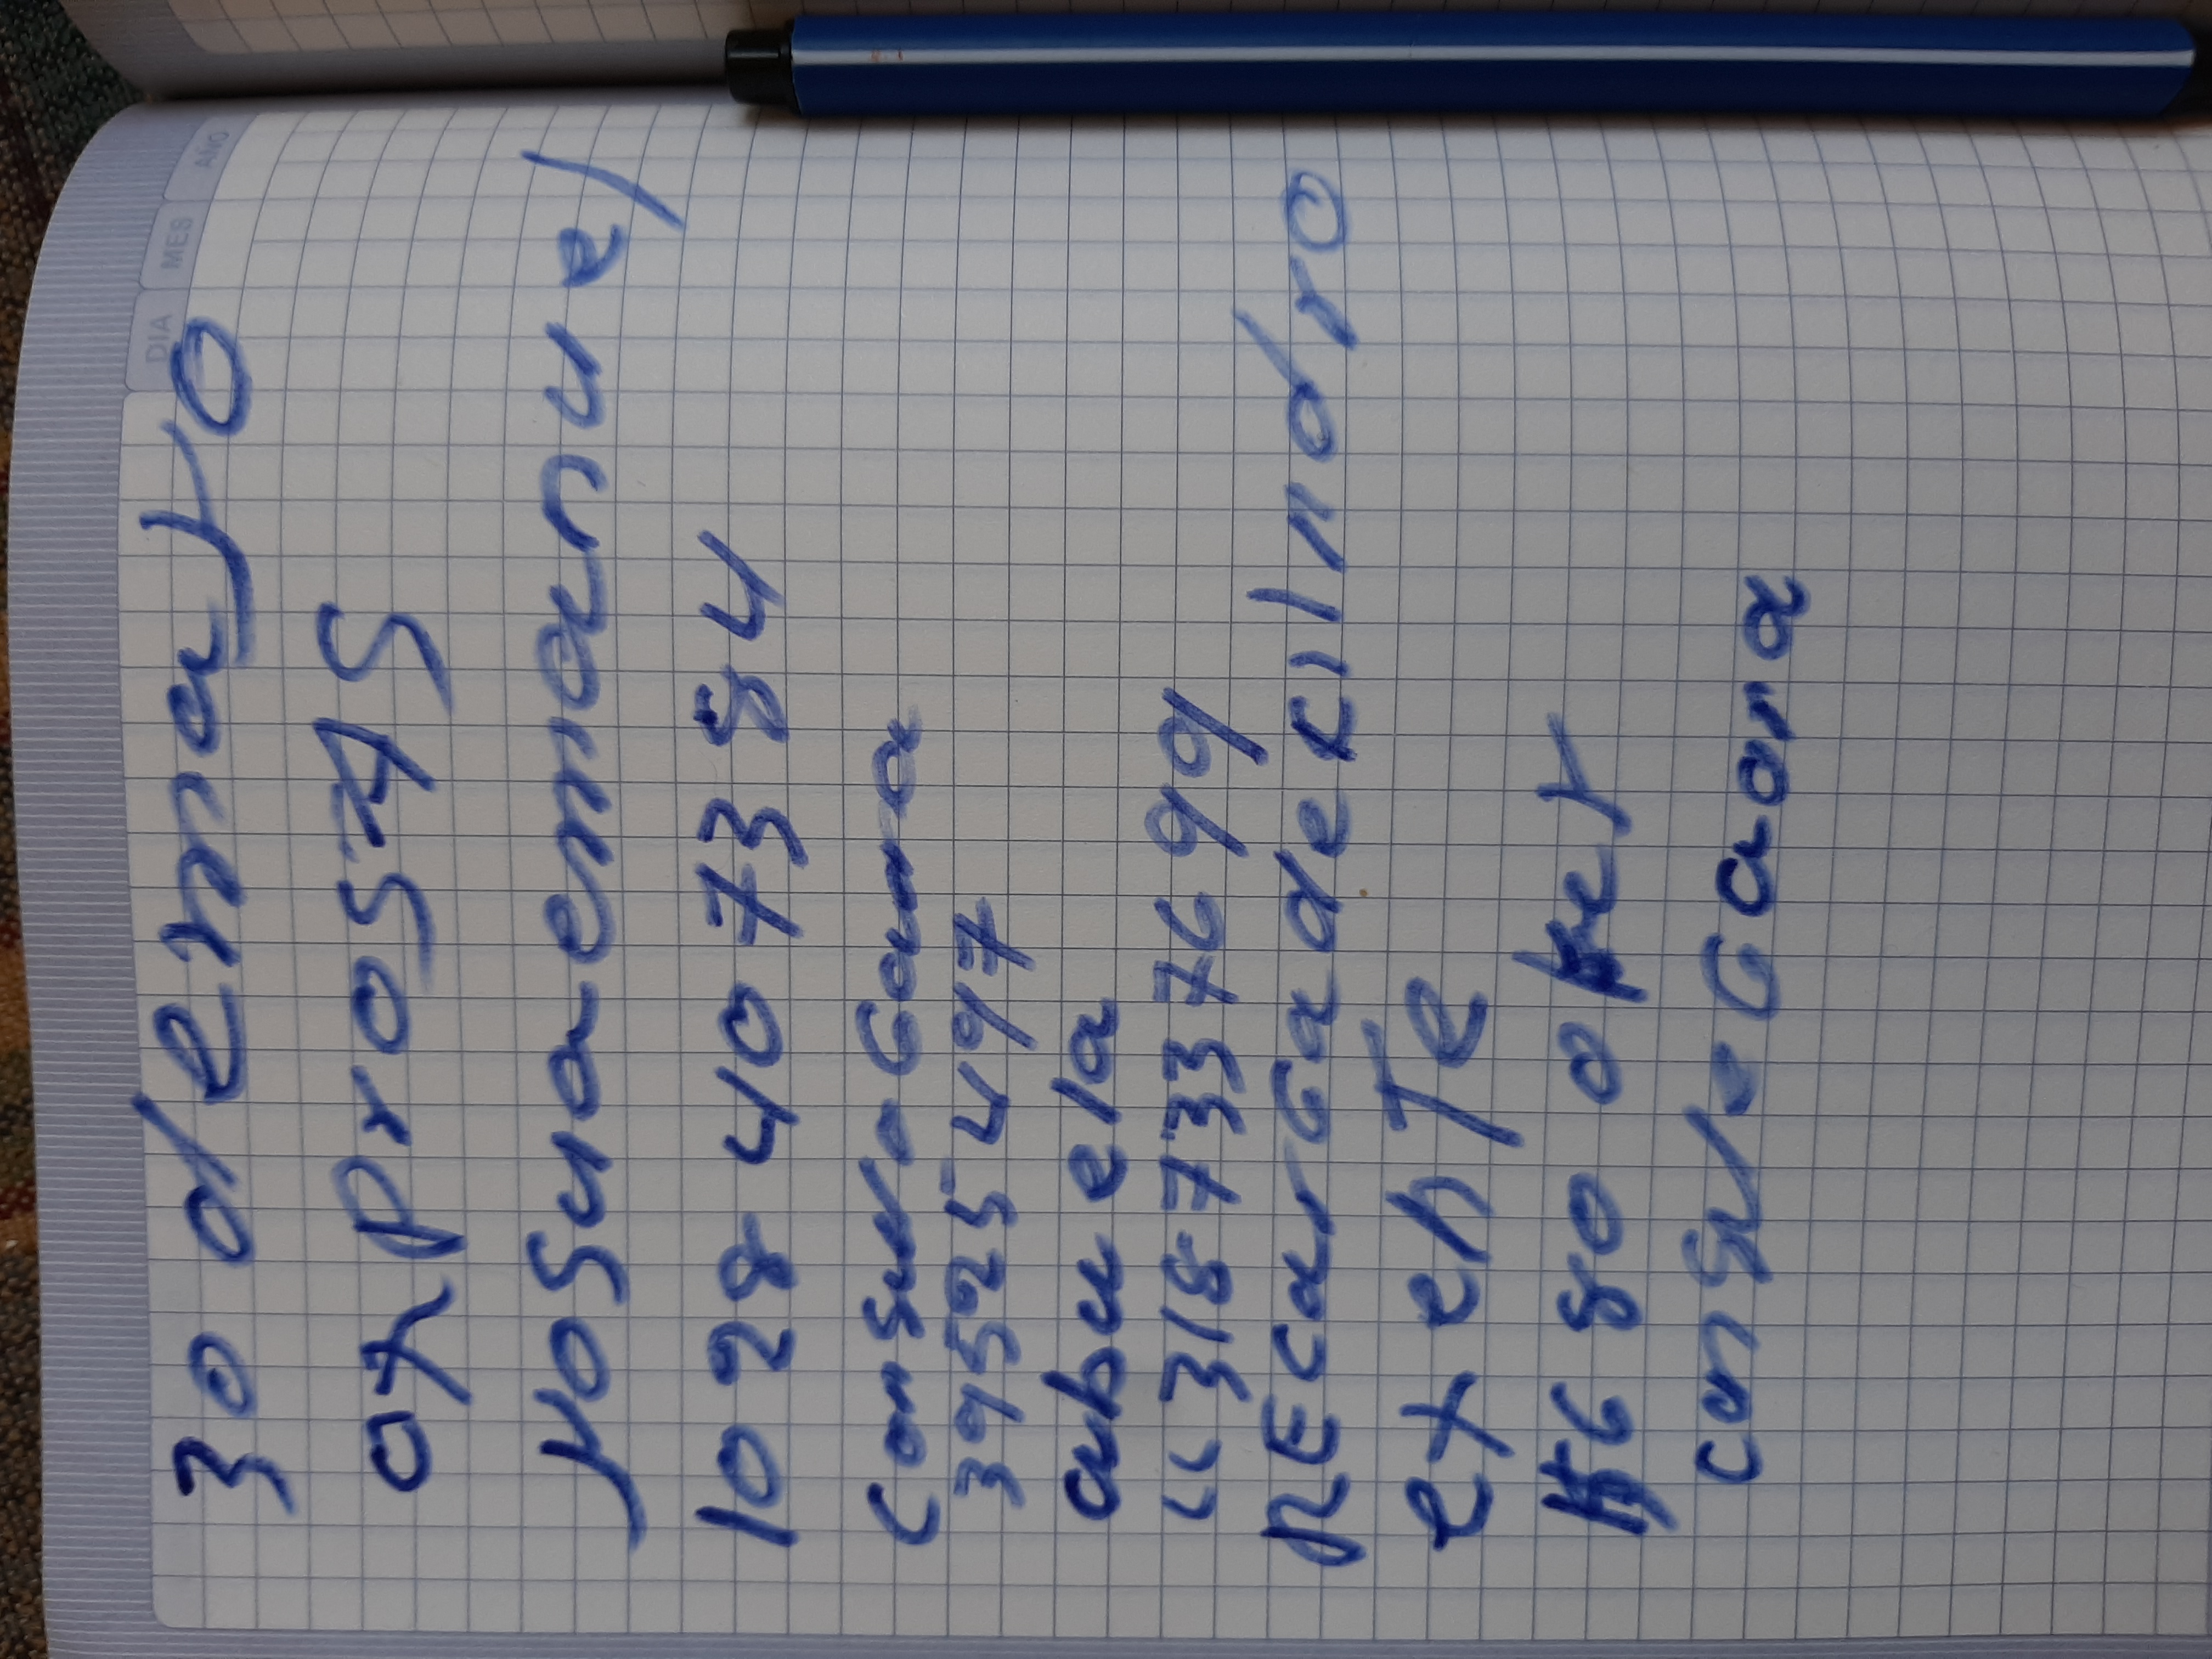 DIA MES AÑO
30 de mayo
ox prosas
yosuaemanuel
1028 4073 84
consulo Gaona
395254 97
abuela
"3187337699
RECarGa de cilindro
extenTe
#680
consulo Gaona